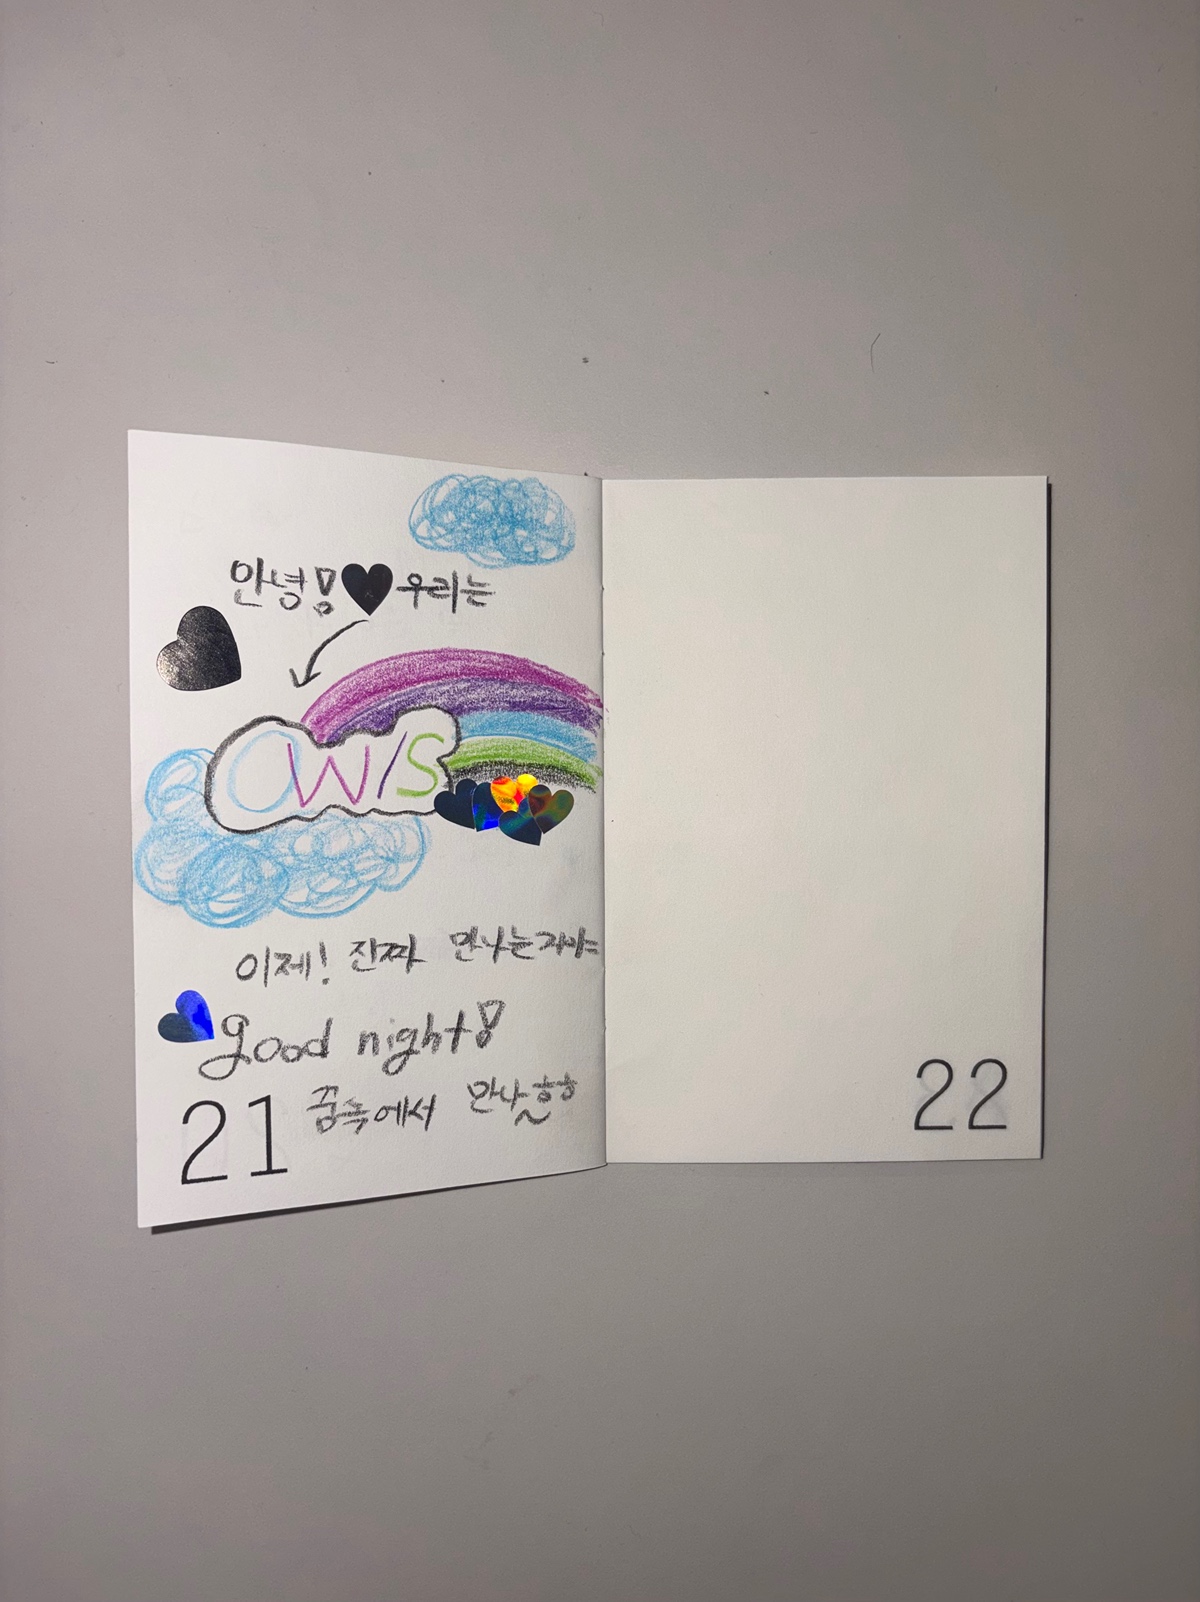 안녕! 우리는
OWIS
이제! 진짜 만나는거야
good night!
21 꿈속에서 만나~ㅎㅎ
22